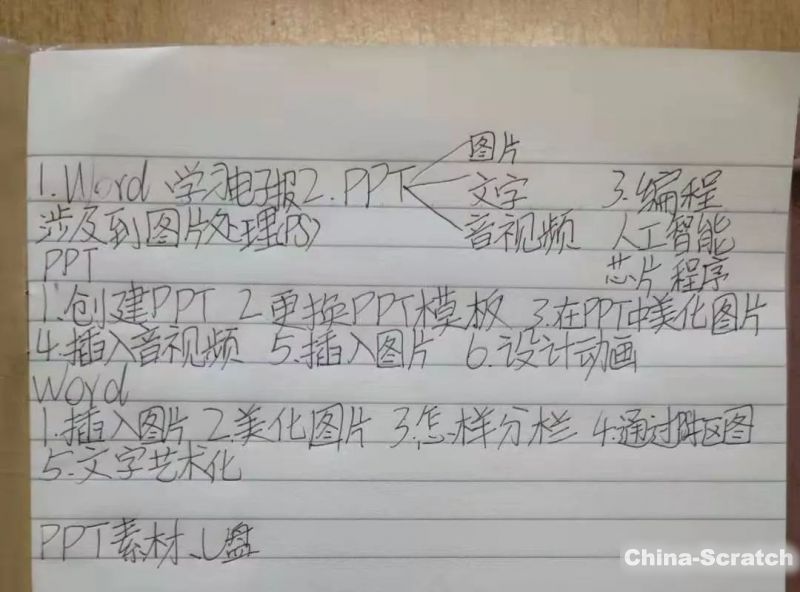 图片
1. Word 学习电子报 2. PPT 文字 3. 编程
涉及到图片处理(PS) 音视频 人工智能
PPT 芯片 程序
1. 创建PPT 2. 更换PPT模板 3. 在PPT中美化图片
4. 插入音视频 5. 插入图片 6. 设计动画
Word
1. 插入图片 2. 美化图片 3. 怎样分栏 4. 通过 图
5. 文字艺术化
PPT素材、U盘
China-Scratch